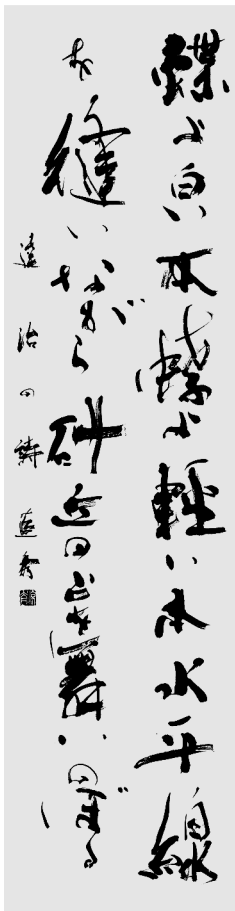 蝶よ白い本蝶よ輕い本水平線
を縫いながら砂丘の上を舞いのぼる
達治の詩